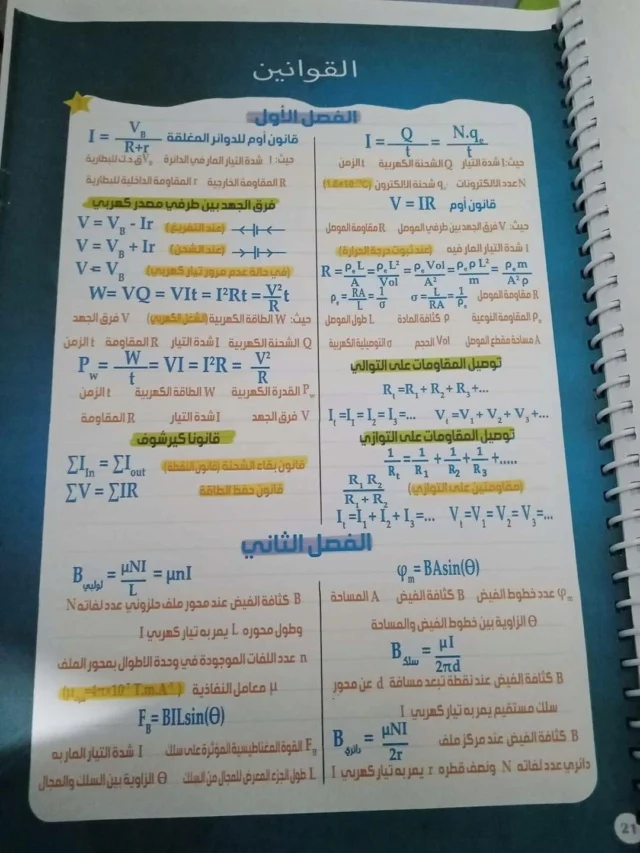 القوانين
الفصل الأول
I = Q/t = N.qₑ/t
حيث: I شدة التيار Q الشحنة الكهربية t الزمن
N عدد الالكترونات qₑ شحنة الالكترون
قانون أوم V = IR
حيث: V فرق الجهد بين طرفي الموصل R مقاومة الموصل
I شدة التيار المار فيه (عند ثبوت درجة الحرارة)
R = ρₑL/A = ρₑL²/Vol = ρₑVol/A² = ρₑρL²/m = ρₑm/A²ρ
R مقاومة الموصل σ = L/RA = 1/ρₑ ρₑ = RA/L = 1/σ
ρₑ المقاومة النوعية ρ كثافة المادة L طول الموصل
A مساحة مقطع الموصل Vol الحجم σ التوصيلية الكهربية
توصيل المقاومات على التوالي
Rₜ=R₁+R₂+R₃+...
Iₜ=I₁=I₂=I₃=... Vₜ=V₁+V₂+V₃+...
توصيل المقاومات على التوازي
1/Rₜ = 1/R₁ + 1/R₂ + 1/R₃ +.....
(مقاومتين على التوازي) R₁R₂/R₁+R₂
Iₜ=I₁+I₂+I₃=... Vₜ=V₁=V₂=V₃=...
قانون أوم للدوائر المغلقة I = V_B/R+r
حيث: I شدة التيار المار في الدائرة V_B ق.د.ك للبطارية
R المقاومة الخارجية r المقاومة الداخلية للبطارية
فرق الجهد بين طرفي مصدر كهربي
V = V_B - Ir (عند التفريغ)
V = V_B + Ir (عند الشحن)
V = V_B (في حالة عدم مرور تيار كهربي)
W= VQ = VIt = I²Rt = V²/R t
حيث: W الطاقة الكهربية (الشغل الكهربي) V فرق الجهد
Q الشحنة الكهربية I شدة التيار R المقاومة t الزمن
P_w = W/t = VI = I²R = V²/R
P_w القدرة الكهربية W الطاقة الكهربية t الزمن
V فرق الجهد I شدة التيار R المقاومة
قانونا كيرشوف
∑I_In = ∑I_out قانون بقاء الشحنة (قانون النقطة)
∑V = ∑IR قانون حفظ الطاقة
الفصل الثاني
φₘ = BAsin(Θ)
φₘ عدد خطوط الفيض B كثافة الفيض A المساحة
Θ الزاوية بين خطوط الفيض والمساحة
B سلك = μI/2πd
B كثافة الفيض عند نقطة تبعد مسافة d عن محور
سلك مستقيم يمر به تيار كهربي I
B كثافة الفيض عند مركز ملف B دائري = μNI/2r
دائري عدد لفاته N ونصف قطره r يمر به تيار كهربي I
B لولبي = μNI/L = μnI
B كثافة الفيض عند محور ملف حلزوني عدد لفاته N
وطول محوره L يمر به تيار كهربي I
n عدد اللفات الموجودة في وحدة الاطوال بمحور الملف
μ معامل النفاذية
F_B = BILsin(Θ)
F_B القوة المغناطيسية المؤثرة على سلك I شدة التيار المار به
L طول الجزء المعرض للمجال من السلك Θ الزاوية بين السلك والمجال
21